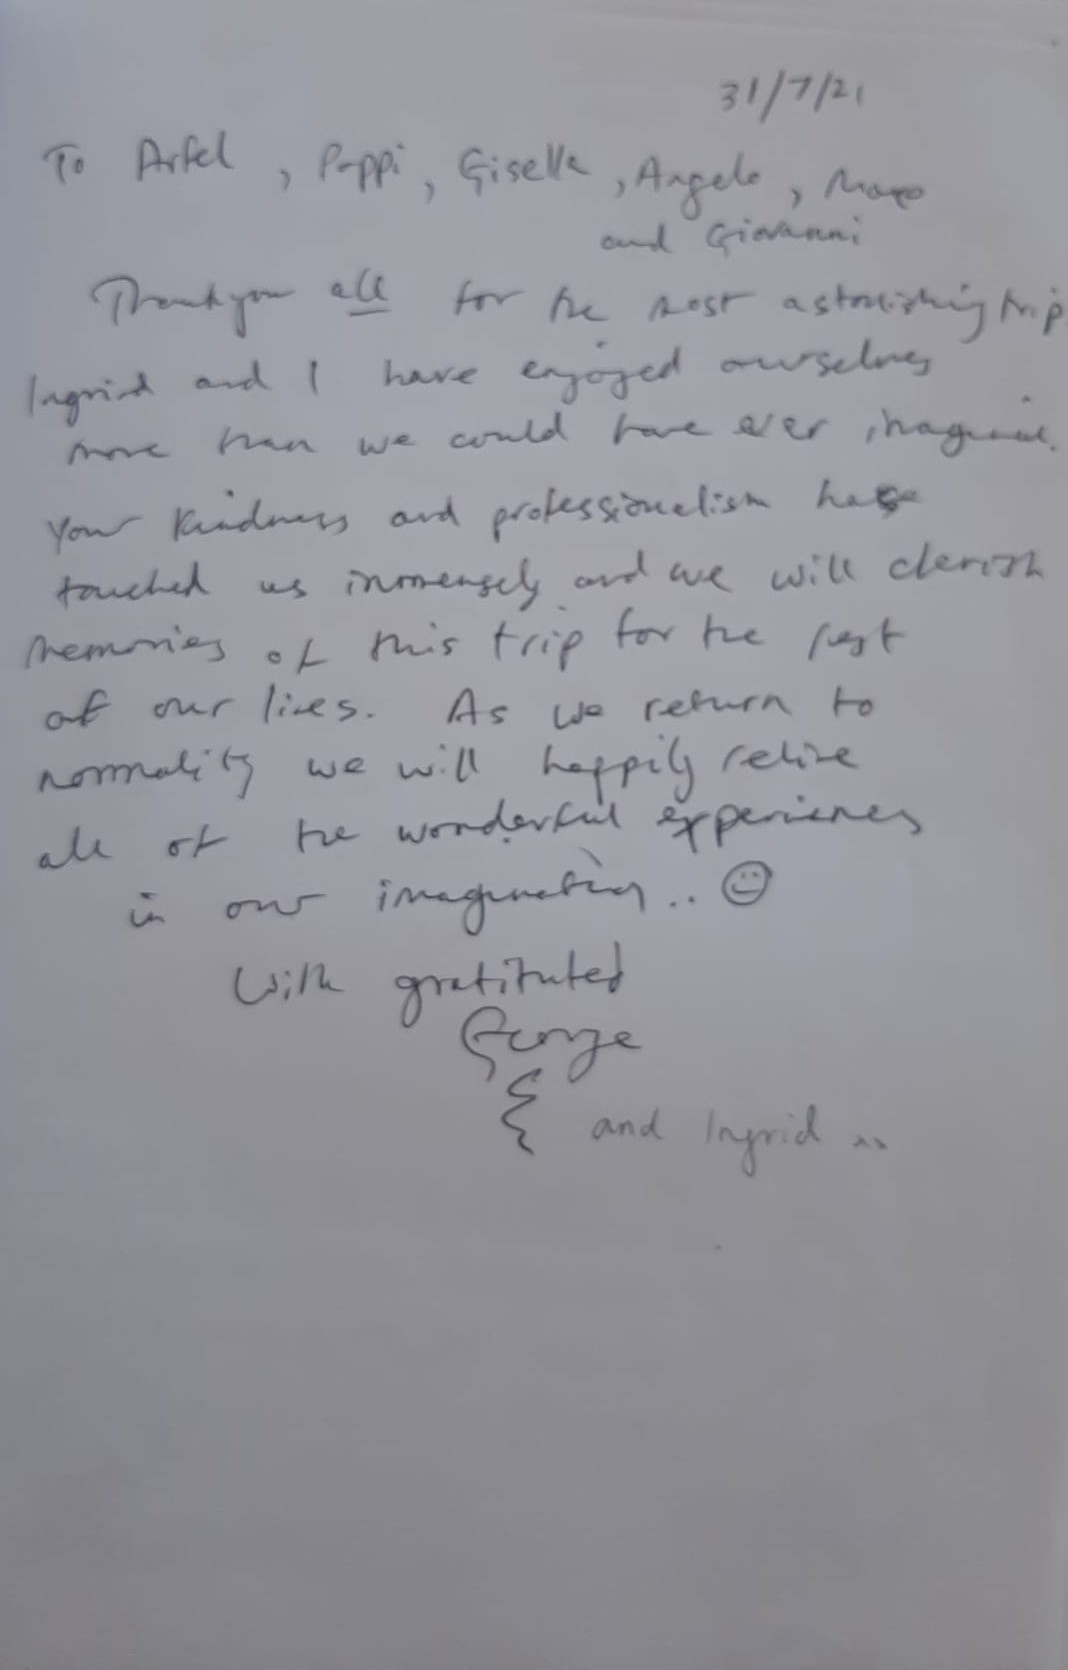 31/7/21
To Arfel, Pappi, Giselle, Angelo,
and Giovanni
Thankyou all for the most astonishing trip.
Ingrid and I have enjoyed ourselves
more than we could have ever imagined.
Your kindness and professionalism have
touched us immensely and we will cherish
memories of this trip for the rest
of our lives. As we return to
normality we will happily relive
all of the wonderful experiences
in our imagination.. ☺
With gratituted
George
and Ingrid ..